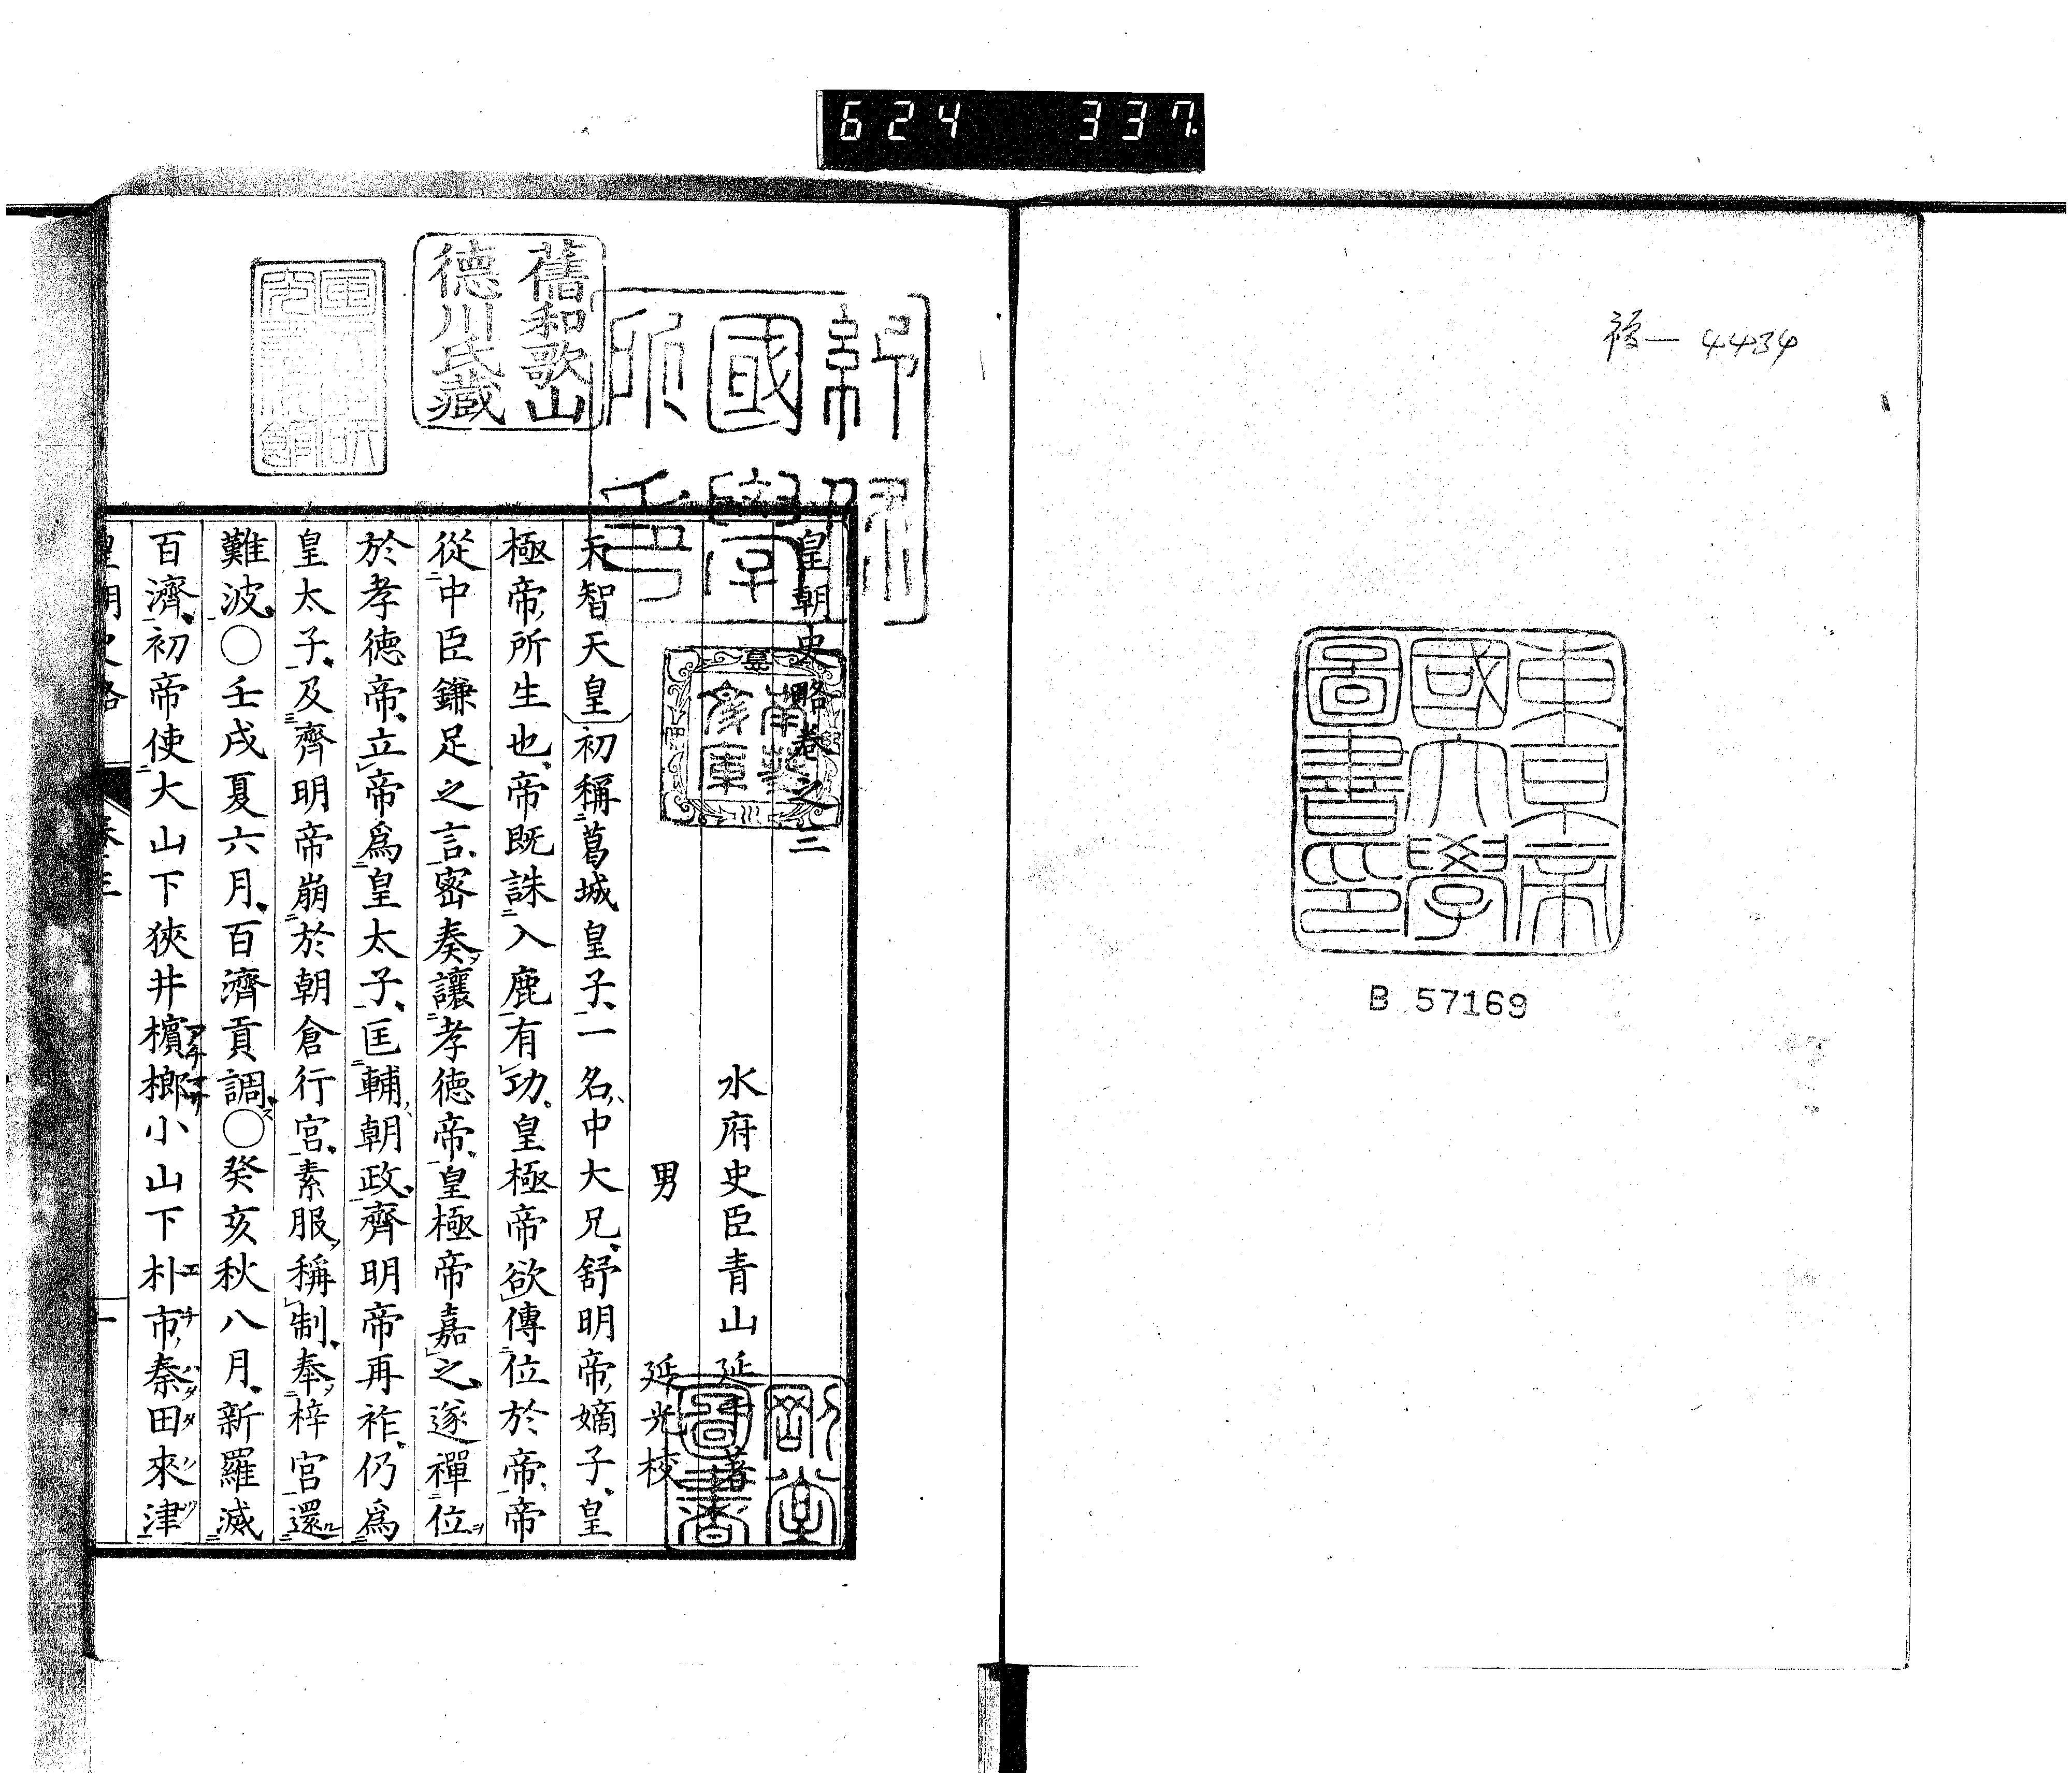 624 337
4434
東京帝
國大學
圖書印
B 57169
舊和歌山
德川氏藏
紀州
國學
所印
南葵
文庫
剛堂
圖書
皇朝史略卷之三
水府史臣青山延于著
男 延光校
天智天皇初稱葛城皇子一名中大兄舒明帝嫡子皇
極帝所生也帝既誅入鹿有功皇極帝欲傳位於帝帝
從中臣鎌足之言密奏讓孝徳帝皇極帝嘉之遂禪位
於孝徳帝立帝爲皇太子匡輔朝政齊明帝再祚仍爲
皇太子及齊明帝崩於朝倉行宮素服稱制奉梓宮還
難波○壬戌夏六月百濟貢調○癸亥秋八月新羅滅
百濟初帝使大山下狹井檳榔小山下朴市秦田來津
皇朝史略 卷三 一